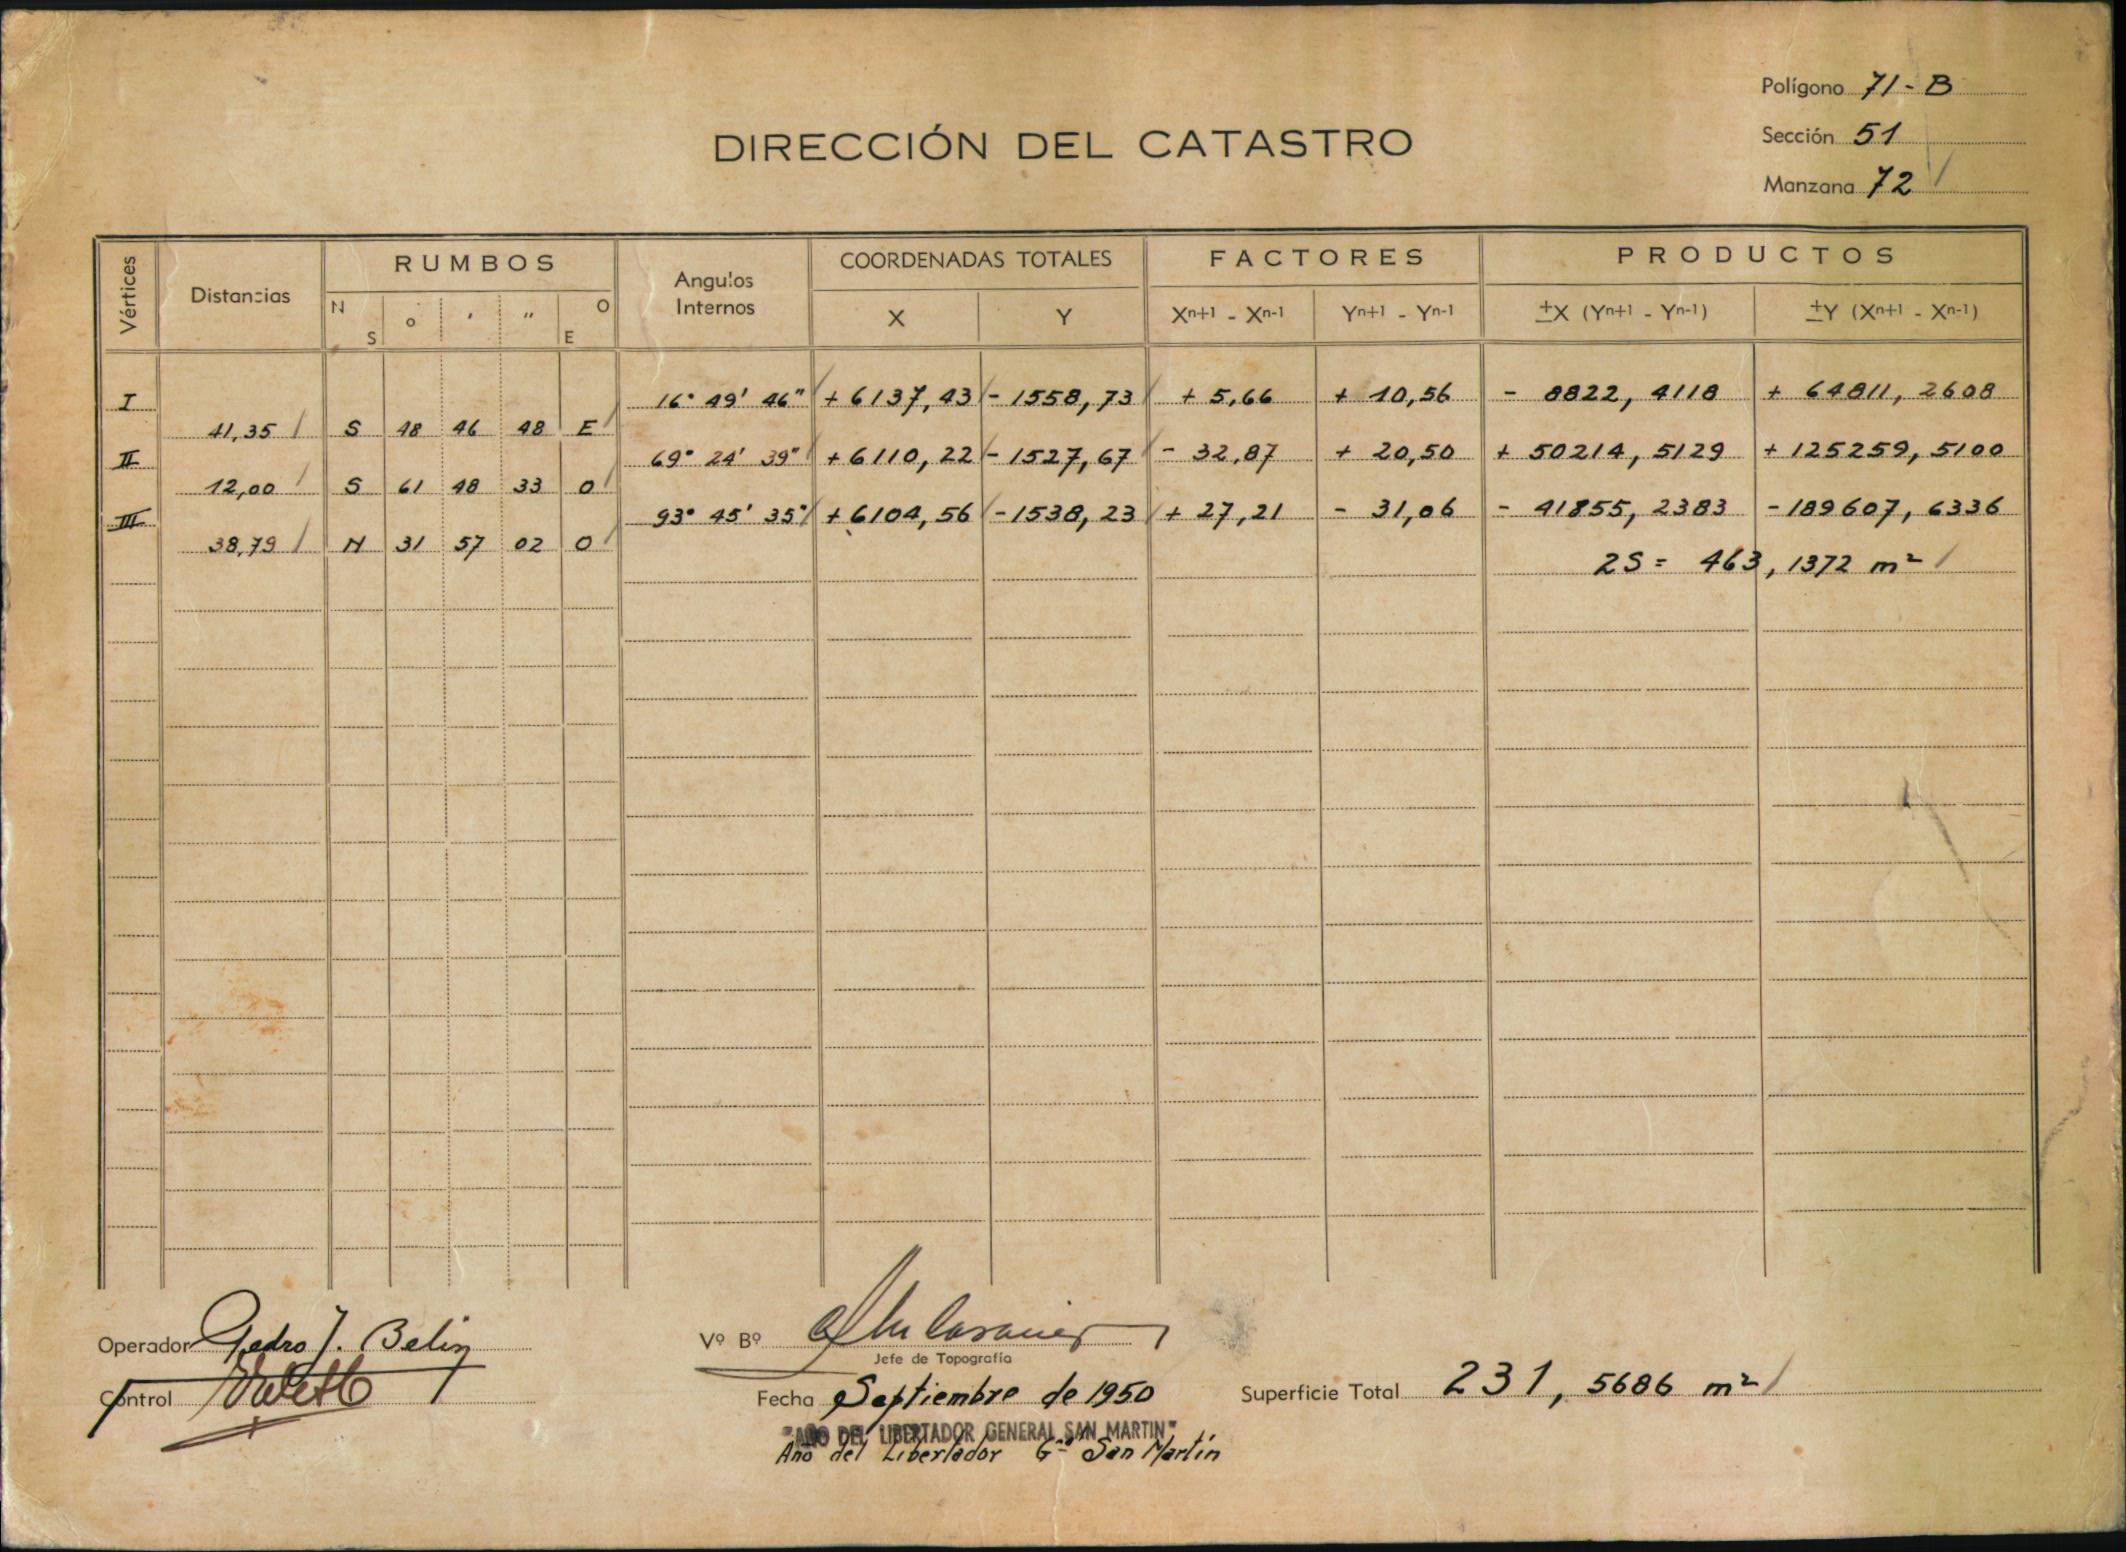 Polígono 71-B
DIRECCIÓN DEL CATASTRO
Sección 51
Manzana 72
Vértices Distancias RUMBOS Angulos Internos COORDENADAS TOTALES FACTORES PRODUCTOS
N S o ' " O E X Y Xn+1 - Xn-1 Yn+1 - Yn-1 ±X (Yn+1 - Yn-1) ±Y (Xn+1 - Xn-1)
I 16° 49' 46" + 6137,43 - 1558,73 + 5,66 + 10,56 - 8822, 4118 + 64811, 2608
41,35 S 48 46 48 E
II 69° 24' 39" + 6110,22 - 1527,67 - 32,87 + 20,50 + 50214, 5129 + 125259, 5100
12,00 S 61 48 33 O
III 93° 45' 35" + 6104,56 - 1538,23 + 27,21 - 31,06 - 41855, 2383 - 189607, 6336
38,79 N 31 57 02 O
2S = 463,1372 m²
Operador Pedro J. Belin
Vº Bº
Jefe de Topografía
Control
Fecha Septiembre de 1950
Superficie Total 231, 5686 m²
"AÑO DEL LIBERTADOR GENERAL SAN MARTIN"
Año del Libertador Gral San Martín